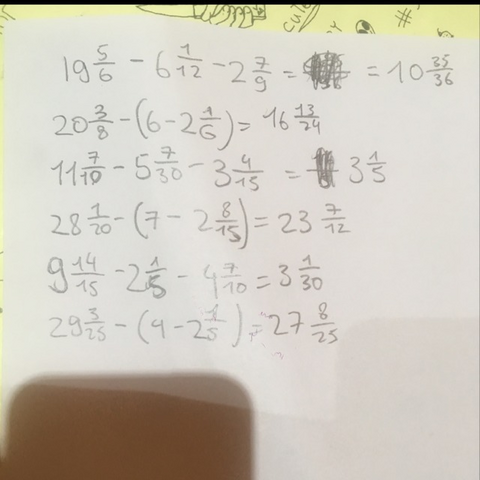 19 5/6 - 6 1/12 - 2 7/9 = = 10 35/36
20 3/8 - (6 - 2 1/6) = 16 13/24
11 7/10 - 5 7/30 - 3 4/15 = 3 1/5
28 1/20 - (7 - 2 8/15) = 23 7/12
9 14/15 - 2 1/5 - 4 7/10 = 3 1/30
29 3/25 - (4 - 2 1/5) = 27 8/25